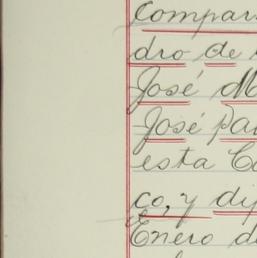 Compar
dro de
José M
José Pa
esta C
co, y di
Enero d